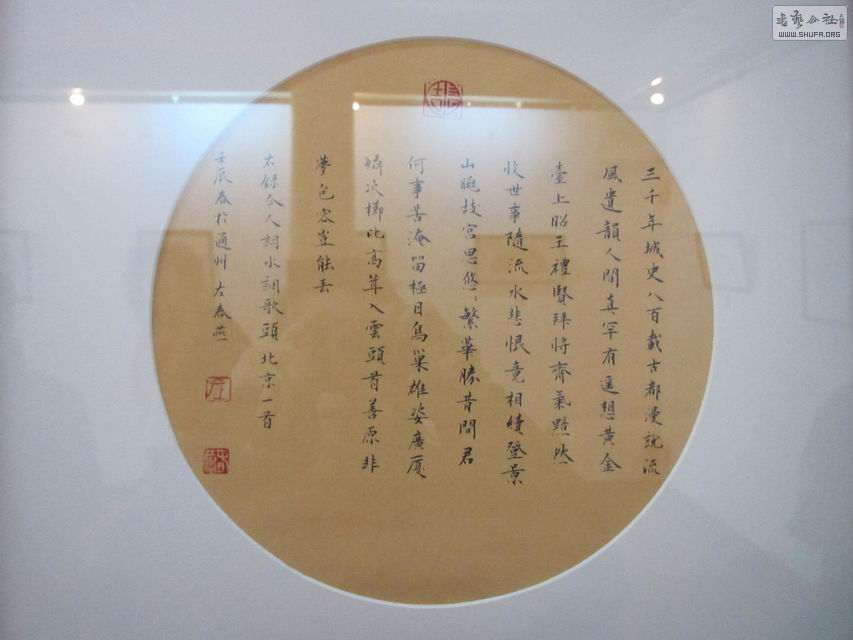 三千年城史八百載古都漫説流
風遺韻人間真罕有遥想黄金
臺上昭王禮賢拜將齊氣黯然
收世事隨流水悲恨竟相續登景
山眺故宮思悠、繁華勝昔問君
何事苦淹留極目鳥巢雄姿廣厦
鱗次櫛比高聳入雲頭首善原非
夢包容豈能丟
右録今人詞水調歌頭北京一首
壬辰春於通州左春燕
書藝公社
WWW.SHUFA.ORG